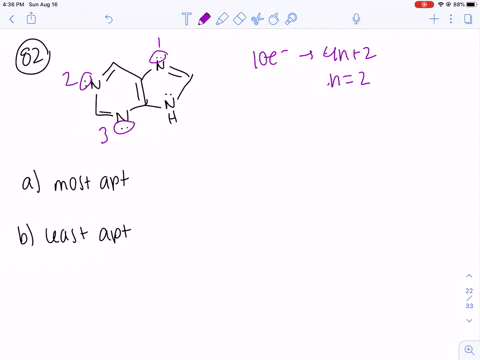 4:36 PM Sun Aug 16
88%
82
1
2
3
N
N
N
N
H
10e⁻ → 4n+2
n=2
a) most apt
b) least apt
22
/
33